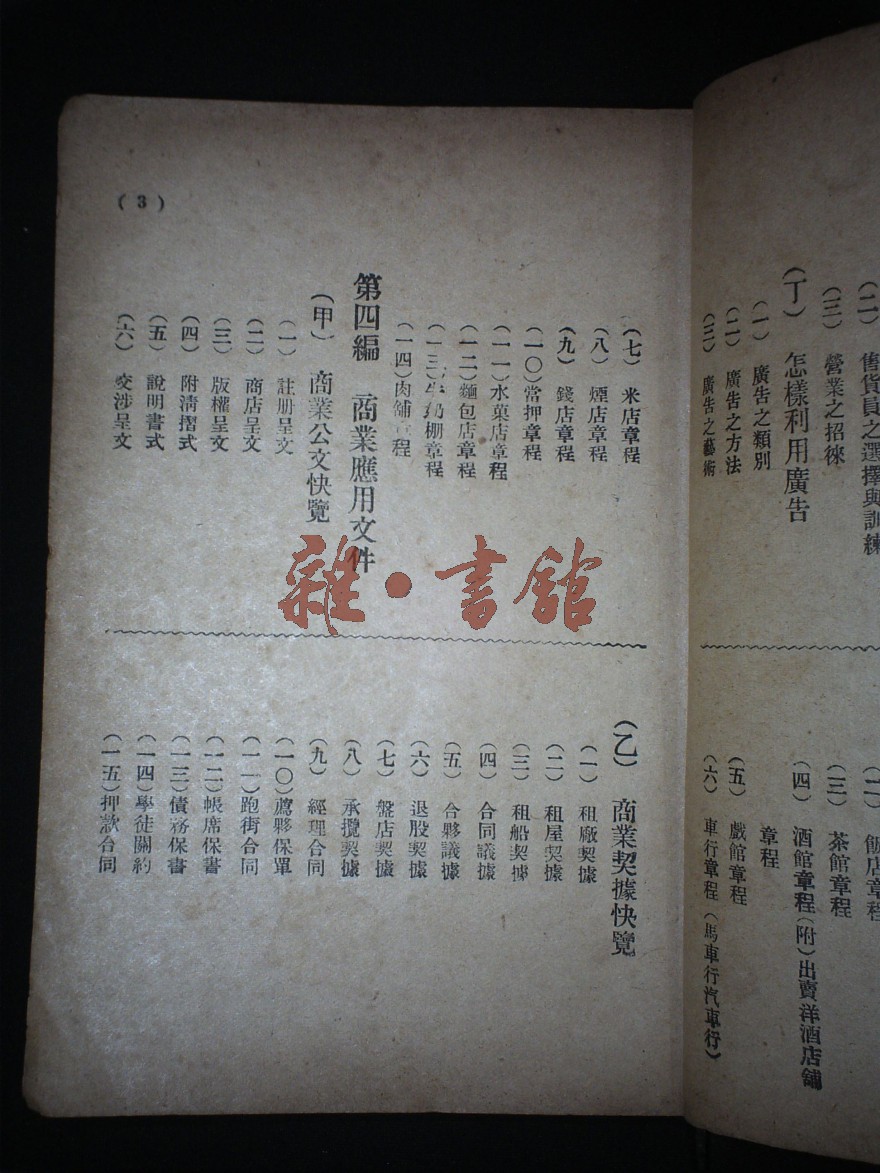 (二) 售貨員之選擇與訓練
(三) 營業之招徠
(丁) 怎樣利用廣告
(一) 廣告之類別
(二) 廣告之方法
(三) 廣告之藝術
(二) 飯店章程
(三) 茶館章程
(四) 酒館章程(附)出賣洋酒店舖
章程
(五) 戲館章程
(六) 車行章程(馬車行汽車行)
(3)
(七) 米店章程
(八) 煙店章程
(九) 錢店章程
(一〇)當押章程
(一一)水菓店章程
(一二)麵包店章程
(一三)牛奶棚章程
(一四)肉舖章程
第四編 商業應用文件
(甲) 商業公文快覽
(一) 註册呈文
(二) 商店呈文
(三) 版權呈文
(四) 附清摺式
(五) 說明書式
(六) 交涉呈文
(乙) 商業契據快覽
(一) 租廠契據
(二) 租屋契據
(三) 租船契據
(四) 合同議據
(五) 合夥議據
(六) 退股契據
(七) 盤店契據
(八) 承攬契據
(九) 經理合同
(一〇)薦夥保單
(一一)跑街合同
(一二)帳席保書
(一三)債務保書
(一四)學徒關約
(一五)押款合同
雜·書館